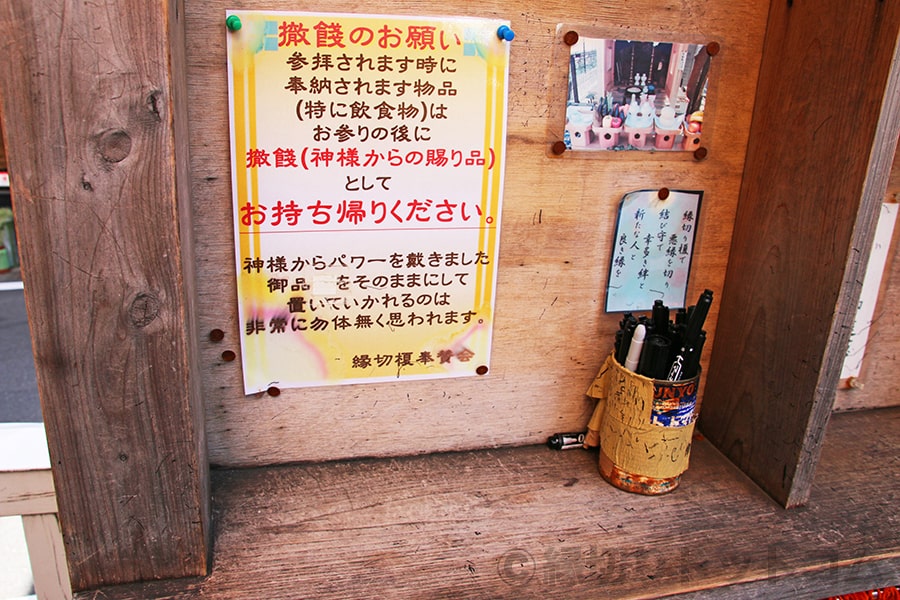 撤饌のお願い
参拝されます時に
奉納されます物品
(特に飲食物)は
お参りの後に
撤饌(神様からの賜り品)
として
お持ち帰りください。
神様からパワーを戴きました
御品 をそのままにして
置いていかれるのは
非常に勿体無く思われます。
縁切榎奉賛会
縁切り榎で
悪縁を切り
結び守で
幸多き絆と
新たな人と
良き縁を